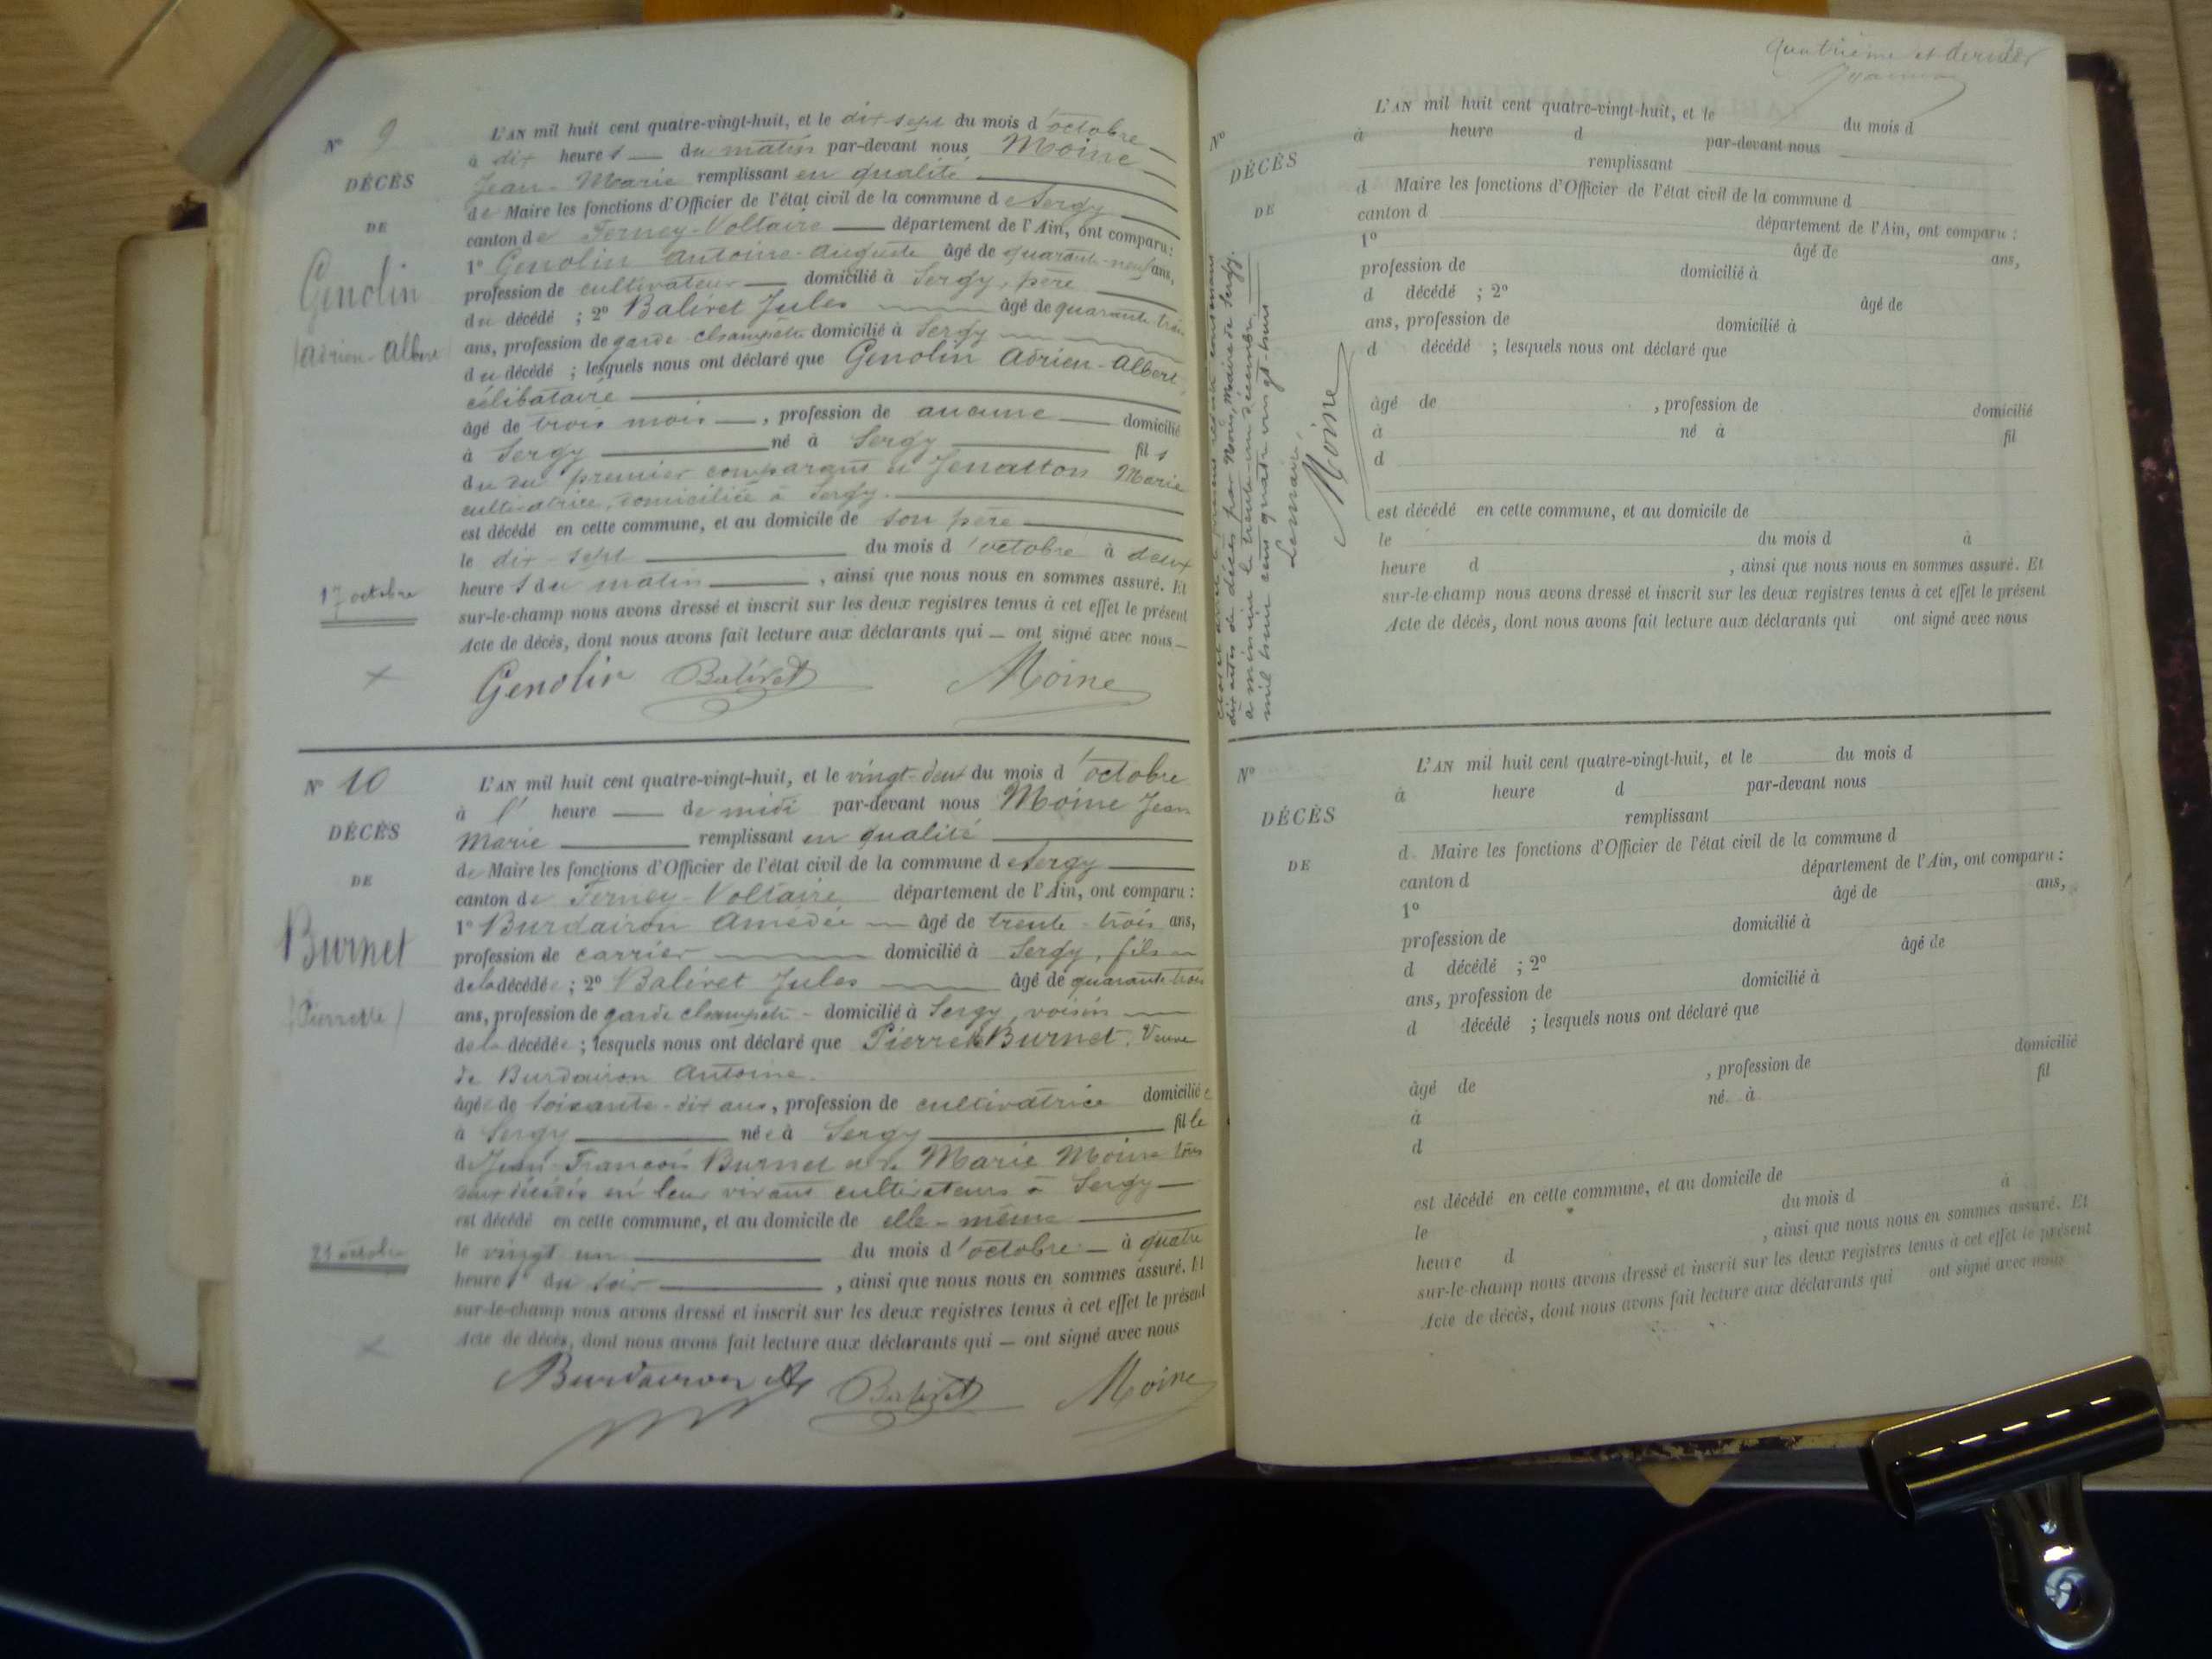 N° 9
DÉCÈS
DE
Genolin
(Adrien-Albert)
17 octobre
L'AN mil huit cent quatre-vingt-huit, et le dix-sept du mois d'octobre
à dix heures du matin par-devant nous Moine
Jean-Marie remplissant en qualité
de Maire les fonctions d'Officier de l'état civil de la commune de Sergy
canton de Ferney-Voltaire département de l'Ain, ont comparu :
1° Genolin Antoine-Auguste âgé de quarante-neuf ans,
profession de cultivateur domicilié à Sergy, père
du décédé ; 2° Balivet Jules âgé de quarante trois
ans, profession de garde champêtre domicilié à Sergy
du décédé ; lesquels nous ont déclaré que Genolin Adrien-Albert,
célibataire
âgé de trois mois, profession de aucune domicilié
à Sergy né à Sergy fils
du du premier comparant et Jenatton Marie
cultivatrice, domiciliée à Sergy.
est décédé en cette commune, et au domicile de son père
le dix-sept du mois d'octobre à deux
heures du matin, ainsi que nous nous en sommes assuré. Et
sur-le-champ nous avons dressé et inscrit sur les deux registres tenus à cet effet le présent
Acte de décès, dont nous avons fait lecture aux déclarants qui — ont signé avec nous
Genolin Balivet Moine
N° 10
DÉCÈS
DE
Burnet
(Pierrette)
21 octobre
L'AN mil huit cent quatre-vingt-huit, et le vingt-deux du mois d'octobre
à l' heure de midi par-devant nous Moine Jean
Marie remplissant en qualité
de Maire les fonctions d'Officier de l'état civil de la commune de Sergy
canton de Ferney-Voltaire département de l'Ain, ont comparu :
1° Burdairon Amédée âgé de trente-trois ans,
profession de carrier domicilié à Sergy, fils
de la décédée ; 2° Balivet Jules âgé de quarante trois
ans, profession de garde champêtre - domicilié à Sergy, voisin
de la décédée ; lesquels nous ont déclaré que Pierrette Burnet, Veuve
de Burdairon Antoine.
âgée de soixante-dix ans, profession de cultivatrice domiciliée
à Sergy née à Sergy fille
de Jean-François Burnet et de Marie Moine tous
deux décédés en leur vivant cultivateurs à Sergy
est décédé en cette commune, et au domicile de elle-même
le vingt un du mois d'octobre à quatre
heures du soir, ainsi que nous nous en sommes assuré. Et
sur-le-champ nous avons dressé et inscrit sur les deux registres tenus à cet effet le présent
Acte de décès, dont nous avons fait lecture aux déclarants qui — ont signé avec nous
Burdairon A Balivet Moine
Quatrième et dernier
dix actes de décès par Nous, Maire de Sergy.
à minuit le trente-un décembre
mil huit cent quatre vingt-huit
Le maire,
Moine
N°
DÉCÈS
DE
L'AN mil huit cent quatre-vingt-huit, et le du mois d
à heure d par-devant nous
remplissant
d Maire les fonctions d'Officier de l'état civil de la commune d
canton d département de l'Ain, ont comparu :
1° âgé de ans,
profession de domicilié à
d décédé ; 2° âgé de
ans, profession de domicilié à
d décédé ; lesquels nous ont déclaré que
âgé de , profession de domicilié
à né à fil
d
est décédé en cette commune, et au domicile de
le du mois d à
heure d , ainsi que nous nous en sommes assuré. Et
sur-le-champ nous avons dressé et inscrit sur les deux registres tenus à cet effet le présent
Acte de décès, dont nous avons fait lecture aux déclarants qui ont signé avec nous
N°
DÉCÈS
DE
L'AN mil huit cent quatre-vingt-huit, et le du mois d
à heure d par-devant nous
remplissant
d Maire les fonctions d'Officier de l'état civil de la commune d
canton d département de l'Ain, ont comparu :
1° âgé de ans,
profession de domicilié à
d décédé ; 2° âgé de
ans, profession de domicilié à
d décédé ; lesquels nous ont déclaré que
âgé de , profession de domicilié
à né à fil
d
est décédé en cette commune, et au domicile de
le du mois d à
heure d , ainsi que nous nous en sommes assuré. Et
sur-le-champ nous avons dressé et inscrit sur les deux registres tenus à cet effet le présent
Acte de décès, dont nous avons fait lecture aux déclarants qui ont signé avec nous